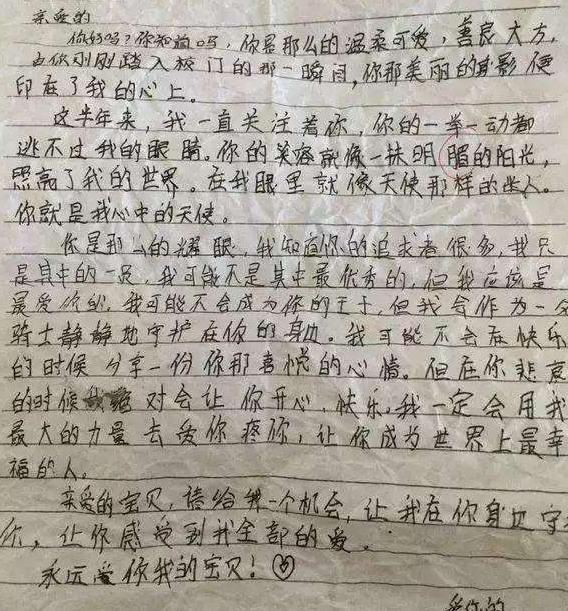 亲爱的
你好吗？你知道吗，你是那么的温柔可爱，善良大方，
当你刚刚踏入校门的那一瞬间，你那美丽的身影便
印在了我的心上。
这半年来，我一直关注着你，你的一举一动都
逃不过我的眼睛。你的笑容就像一抹明媚的阳光，
照亮了我的世界。在我眼里就像天使那样的迷人。
你就是我心中的天使。
你是那么的耀眼，我知道你的追求者很多，我只
是其中的一员，我可能不是其中最优秀的，但我应该是
最爱你的，我可能不会成为你的王子，但我会作为一名
骑士静静地守护在你的身边。我可能不会在快乐
的时候分享一份你那喜悦的心情。但在你悲哀
的时候我绝对会让你开心、快乐，我一定会用我
最大的力量去爱你疼你，让你成为世界上最幸
福的人。
亲爱的宝贝，请给我一个机会，让我在你身边守
你，让你感受到我全部的爱。
永远爱你我的宝贝！
爱你的